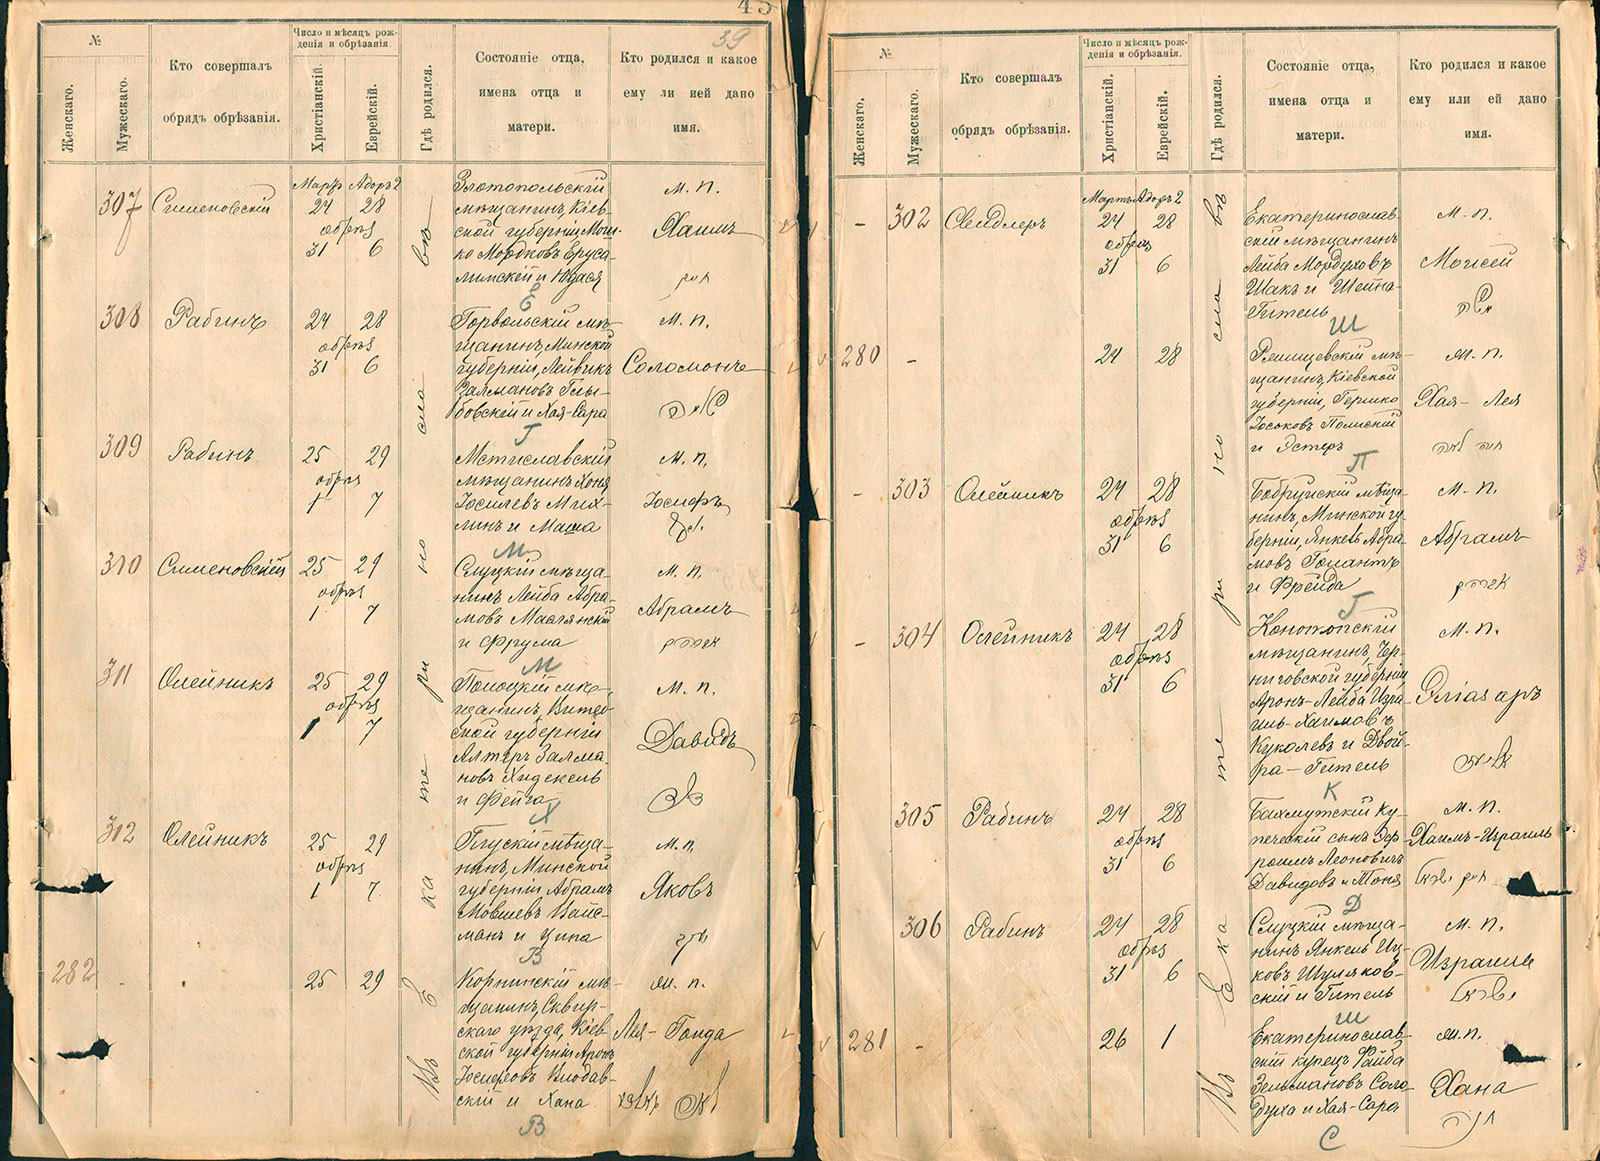 45
39
№
Женскаго.
Мужескаго.
Кто совершалъ
обрядъ обрѣзанія.
Число и мѣсяцъ рож-
денія и обрѣзанія.
Христіанскій.
Еврейскій.
Гдѣ родился.
Состояніе отца,
имена отца и
матери.
Кто родился и какое
ему ли ией дано
имя.
Въ Екатеринославѣ
307
Сименовскій
Мартъ Адоръ 2
24 28
обрѣз
31 6
Златопольскій
мѣщанинъ, Кіев-
ской губерніи, Мош-
ко Мордковъ Еруса-
лимскій и Юдася
м. п.
Хаимъ
חיים
Е
308
Рабинъ
24 28
обрѣз
31 6
Горвольскій мѣ-
щанинъ, Минской
губерніи, Лейвикъ
Залмановъ Глы-
бовскій и Хая-Сара
м. п.
Соломонъ
Г
309
Рабинъ
25 29
обрѣз
1 7
Мстиславскій
мѣщанинъ Хоня
Іосилевъ Мих-
линъ и Маша
м. п.
Іосифъ
יוסף
М
310
Сименовскій
25 29
обрѣз
1 7
Слуцкій мѣща-
нинъ Лейба Абра-
мовъ Маслянскій
и Фрума
м. п.
Абрамъ
אברהם
М
311
Олейникъ
25 29
обрѣз
1 7
Полоцкій мѣ-
щанинъ, Витеб-
ской губерніи
Алтеръ Залма-
новъ Хидекель
и Фейга
м. п.
Давидъ
דוד
Х
312
Олейникъ
25 29
обрѣз
1 7
Глускій мѣща-
нинъ, Минской
губерніи Абрамъ
Мовшевъ Вайс-
манъ и Ципа
м. п.
Яковъ
יעקב
В
282
25 29
Корнинскій мѣ-
щанинъ, Сквир-
скаго уѣзда, Кіев-
ской губерніи Аронъ
Іосифовъ Влодав-
скій и Хана
ж. п.
Лея-Голда
В
№
Женскаго.
Мужескаго.
Кто совершалъ
обрядъ обрѣзанія.
Число и мѣсяцъ рож-
денія и обрѣзанія.
Христіанскій.
Еврейскій.
Гдѣ родился.
Состояніе отца,
имена отца и
матери.
Кто родился и какое
ему или ей дано
имя.
Въ Екатеринославѣ
– 302
Свидлеръ
Мартъ Адоръ 2
24 28
обрѣз
31 6
Екатеринослав-
скій мѣщанинъ
Лейба Мордуховъ
Шакъ и Шейна-
Гитель
м. п.
Моисей
משה
Ш
280 –
24 28
Ржищевскій мѣ-
щанинъ, Кіевской
губерніи, Гершко
Іоськовъ Полискій
и Эстеръ
ж. п.
Хая-Лея
חיה לאה
П
– 303
Олейникъ
24 28
обрѣз
31 6
Бобруйскій мѣща-
нинъ, Минской гу-
берніи, Янкель Абра-
мовъ Голантъ
и Фрейда
м. п.
Абрамъ
אברהם
Г
– 304
Олейникъ
24 28
обрѣз
31 6
Конотопскій
мѣщанинъ, Чер-
ниговской губерніи,
Аронъ-Лейба Изра-
иль-Хаимовъ
Куколевъ и Двой-
ра-Гитель
м. п.
К
305
Рабинъ
24 28
обрѣз
31 6
Бахмутскій ку-
печескій сынъ Эф-
раимъ Леоновичъ
Давидовъ и Тоня
м. п.
Хаимъ-Израиль
חיים ישראל
Д
306
Рабинъ
24 28
обрѣз
31 6
Слуцкій мѣща-
нинъ Янкель Иц-
ковъ Шуляков-
скій и Гитель
м. п.
Израиль
ישראל
Ш
281 –
26 1
Екатеринослав-
скій купецъ Файба
Зельмановъ Соло-
духа и Хая-Сара
ж. п.
Хана
חנה
С